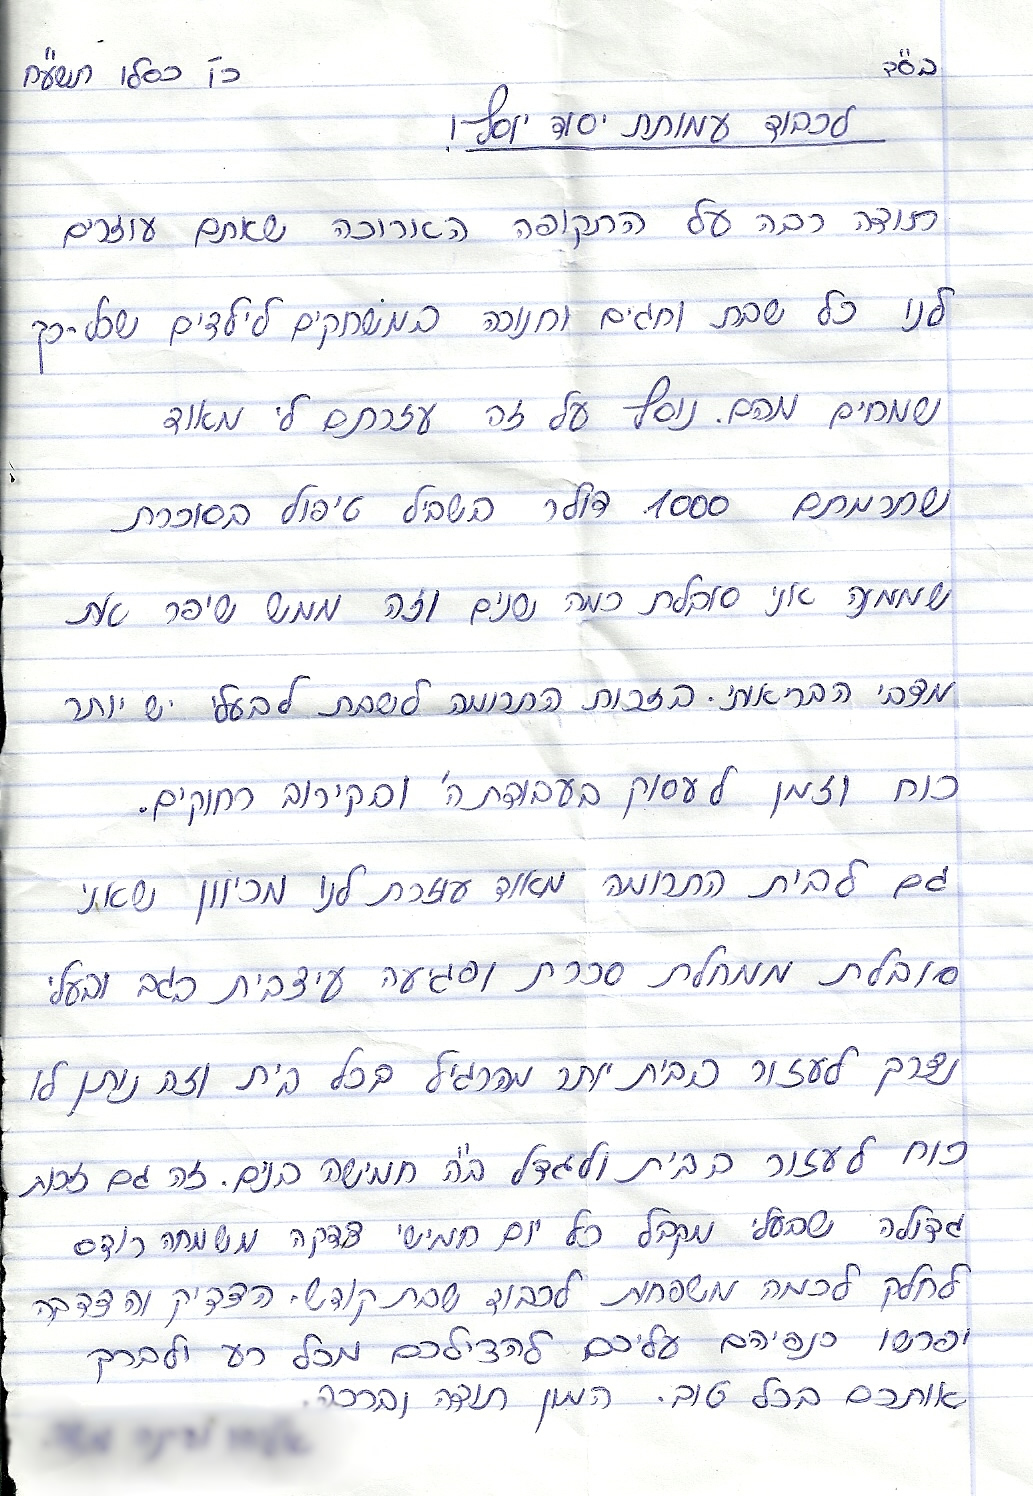 בס"ד
כ"ו כסלו תשע"ח
לכבוד עמותת יסוד יוסף-ו
תודה רבה על התקופה הארוכה שאתם עוזרים
לנו כל שבת וחגים וחנוכה במשחקים לילדים שכל-כך
שמחים מהם. נוסף על זה עזרתם לי מאוד
שתרמתם 1000 דולר בשביל טיפול בסוכרת
שממנה אני סובלת כמה שנים וזה ממש שיפר את
מצבי הבריאתי. בזכות התרומה לשבת לבעלי יש יותר
כוח וזמן לעסוק בעבודת ה' ובקירוב רחוקים.
גם לבית התרומה מאוד עוזרת לנו מכיוון שאני
סובלת ממחלת סכרת ופגיעה עיצבית בגב ובעלי
נצרך לעזור בבית יותר מהרגיל בכל בית וזה ניתן לו
כוח לעזור בבית ולגדל ב"ה חמישה בנים. זה גם זכות
גדולה שבעלי מקבל כל יום חמישי צדקה ממשפחה
לחלק לכמה משפחות לכבוד שבת קודש. הצדיק והצדקה
יפרשו כנפיהם עליכם להצילכם מכל רע ולברך
אותכם בכל טוב. המון תודה וברכה.